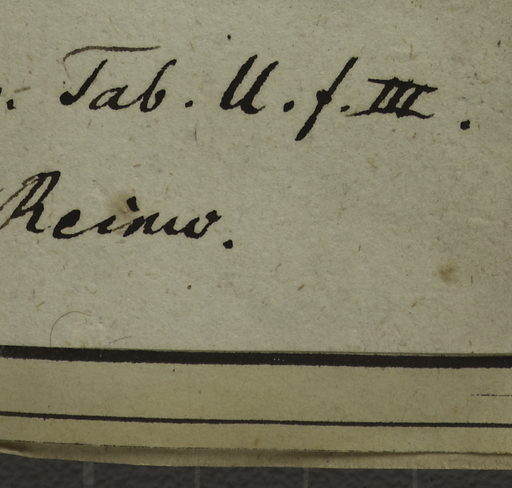 . Tab. U. f. III.
Reinw.